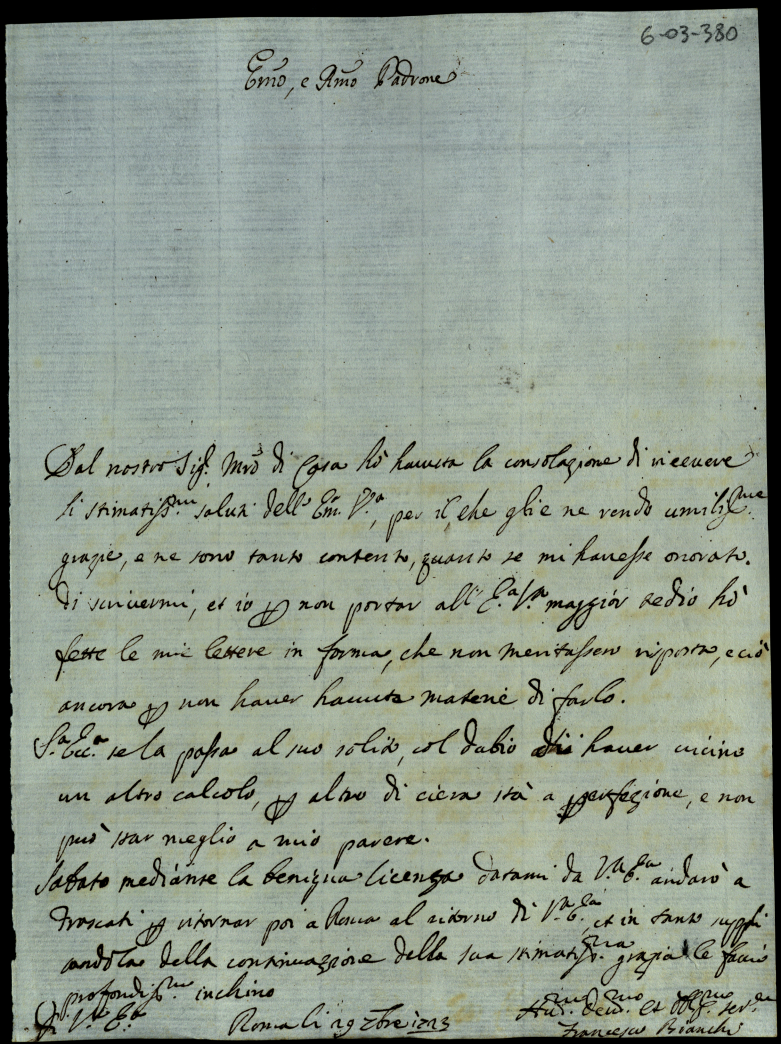 6-03-380
Em̃o, e Rm̃o Padrone
Dal nostro Sig.r Mrõ di Casa hò havuta la consolazione di ricevere
li stimatiss.mi saluti dell' Em. V.a, per il che glie ne rendo umiliss.me
grazie, e ne sono tanto contento, quanto se mi havesse onorato
di scrivermi, et io ꝑ non portar all' E.a V.ra maggior tedio hò
fatte le mie lettere in forma, che non meritassero risposta, e ciò
ancora ꝑ non haver havuta materie di farlo.
S.a Ecc.a se la passa al suo solito, col dubio di haver vicino
un altro calcolo, ꝑ altro di ciera stà a ꝑfezione, e non
può star meglio a mio parere.
Sabato mediante la benigna licenza datami da V.ra E.za andarò a
Frascati ꝑ ritornar poi a Roma al ritorno di V.ra E.za, et in tanto suppli
candola della continuazione della sua stimatiss.ma grazia le faccio
profondiss.mo inchino
Di V.ra E.za
Roma li 29 7bre 1723
Hum.mo Dev.mo et Obl.mo ser.re
Francesco Bianchi